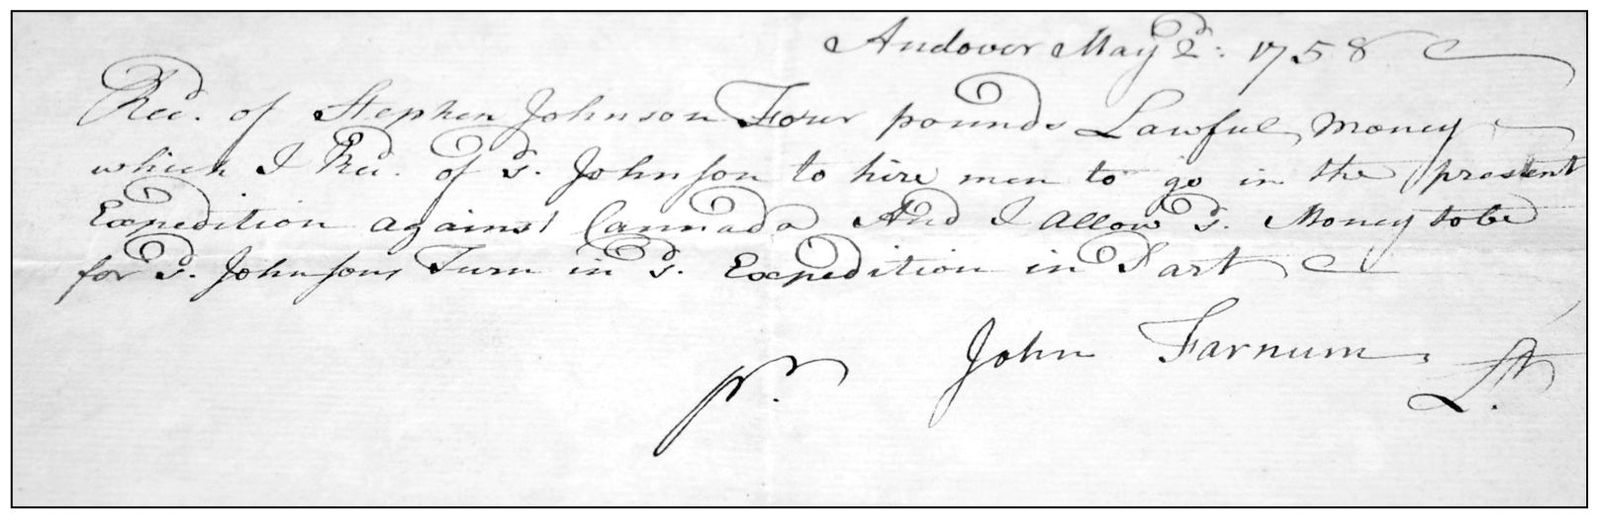 Andover May 2d: 1758
Recd. of Stephen Johnson Four pounds Lawful Money
which I Recd. of sd. Johnson to hire men to go in the present
Expedition against Cannada And I allow sd. Money to be
for sd. Johnsons Turn in sd. Expedition in Part
John Farnum Lt.
pr.